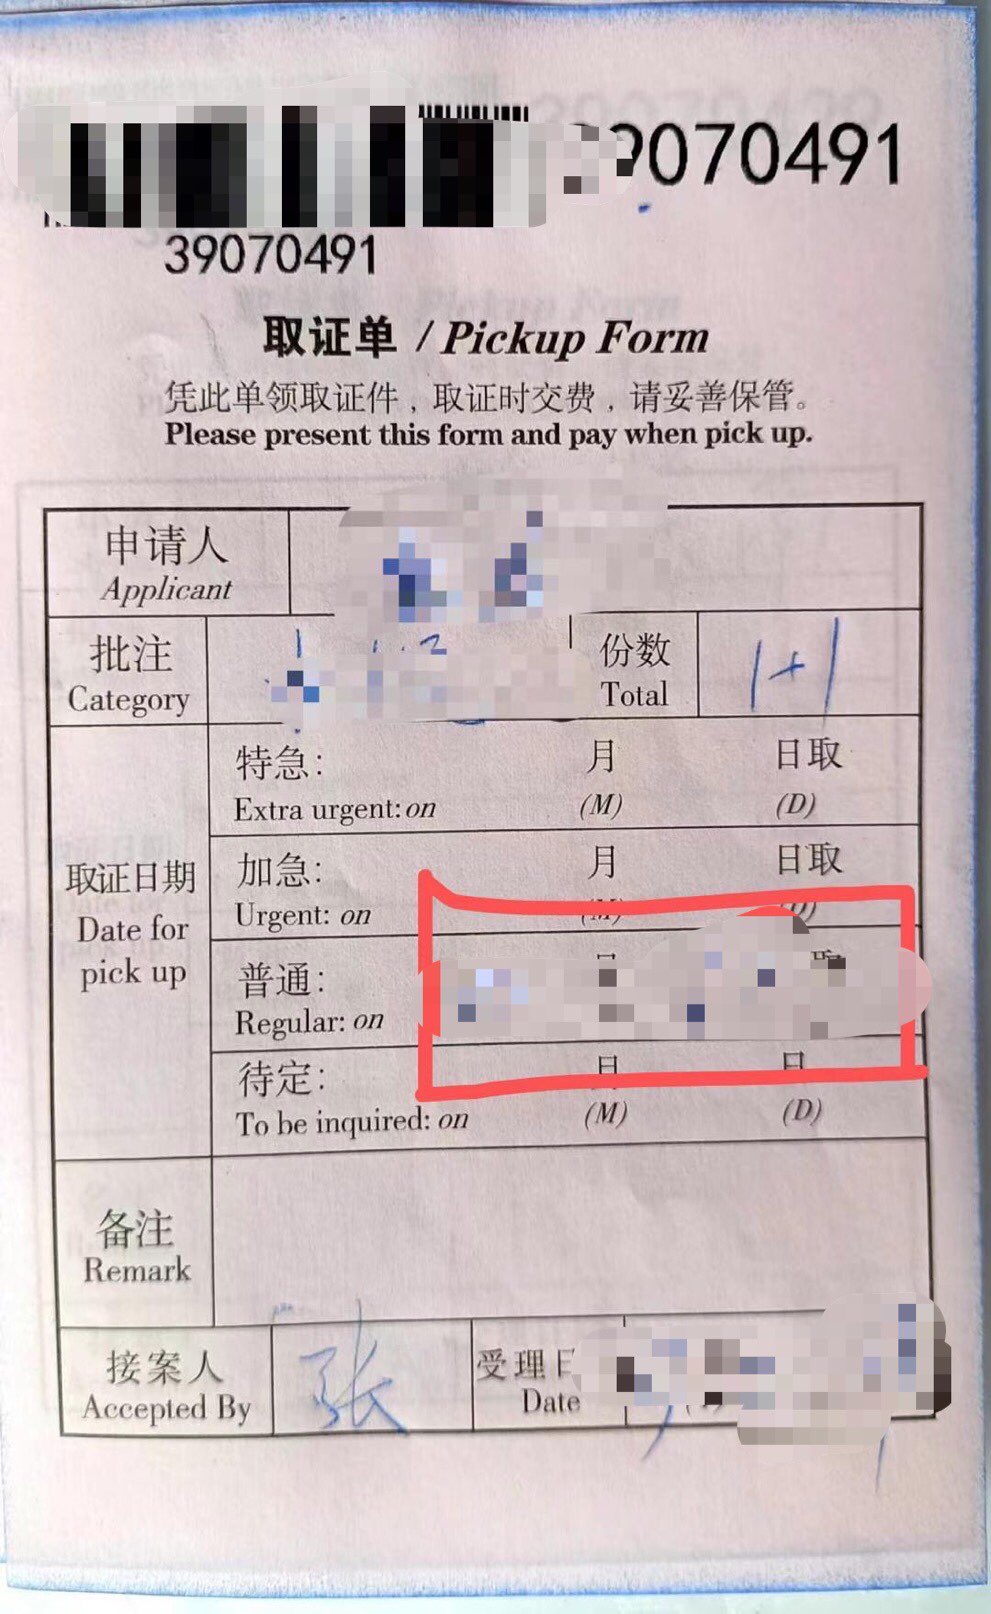 9070491
39070491
取证单 / Pickup Form
凭此单领取证件，取证时交费，请妥善保管。
Please present this form and pay when pick up.
申请人
Applicant
批注
Category
份数
Total
1+1
取证日期
Date for
pick up
特急: 月 日取
Extra urgent: on (M) (D)
加急: 月 日取
Urgent: on (M) (D)
普通: 月 日取
Regular: on
待定: 月 日
To be inquired: on (M) (D)
备注
Remark
接案人
Accepted By
张
受理日
Date